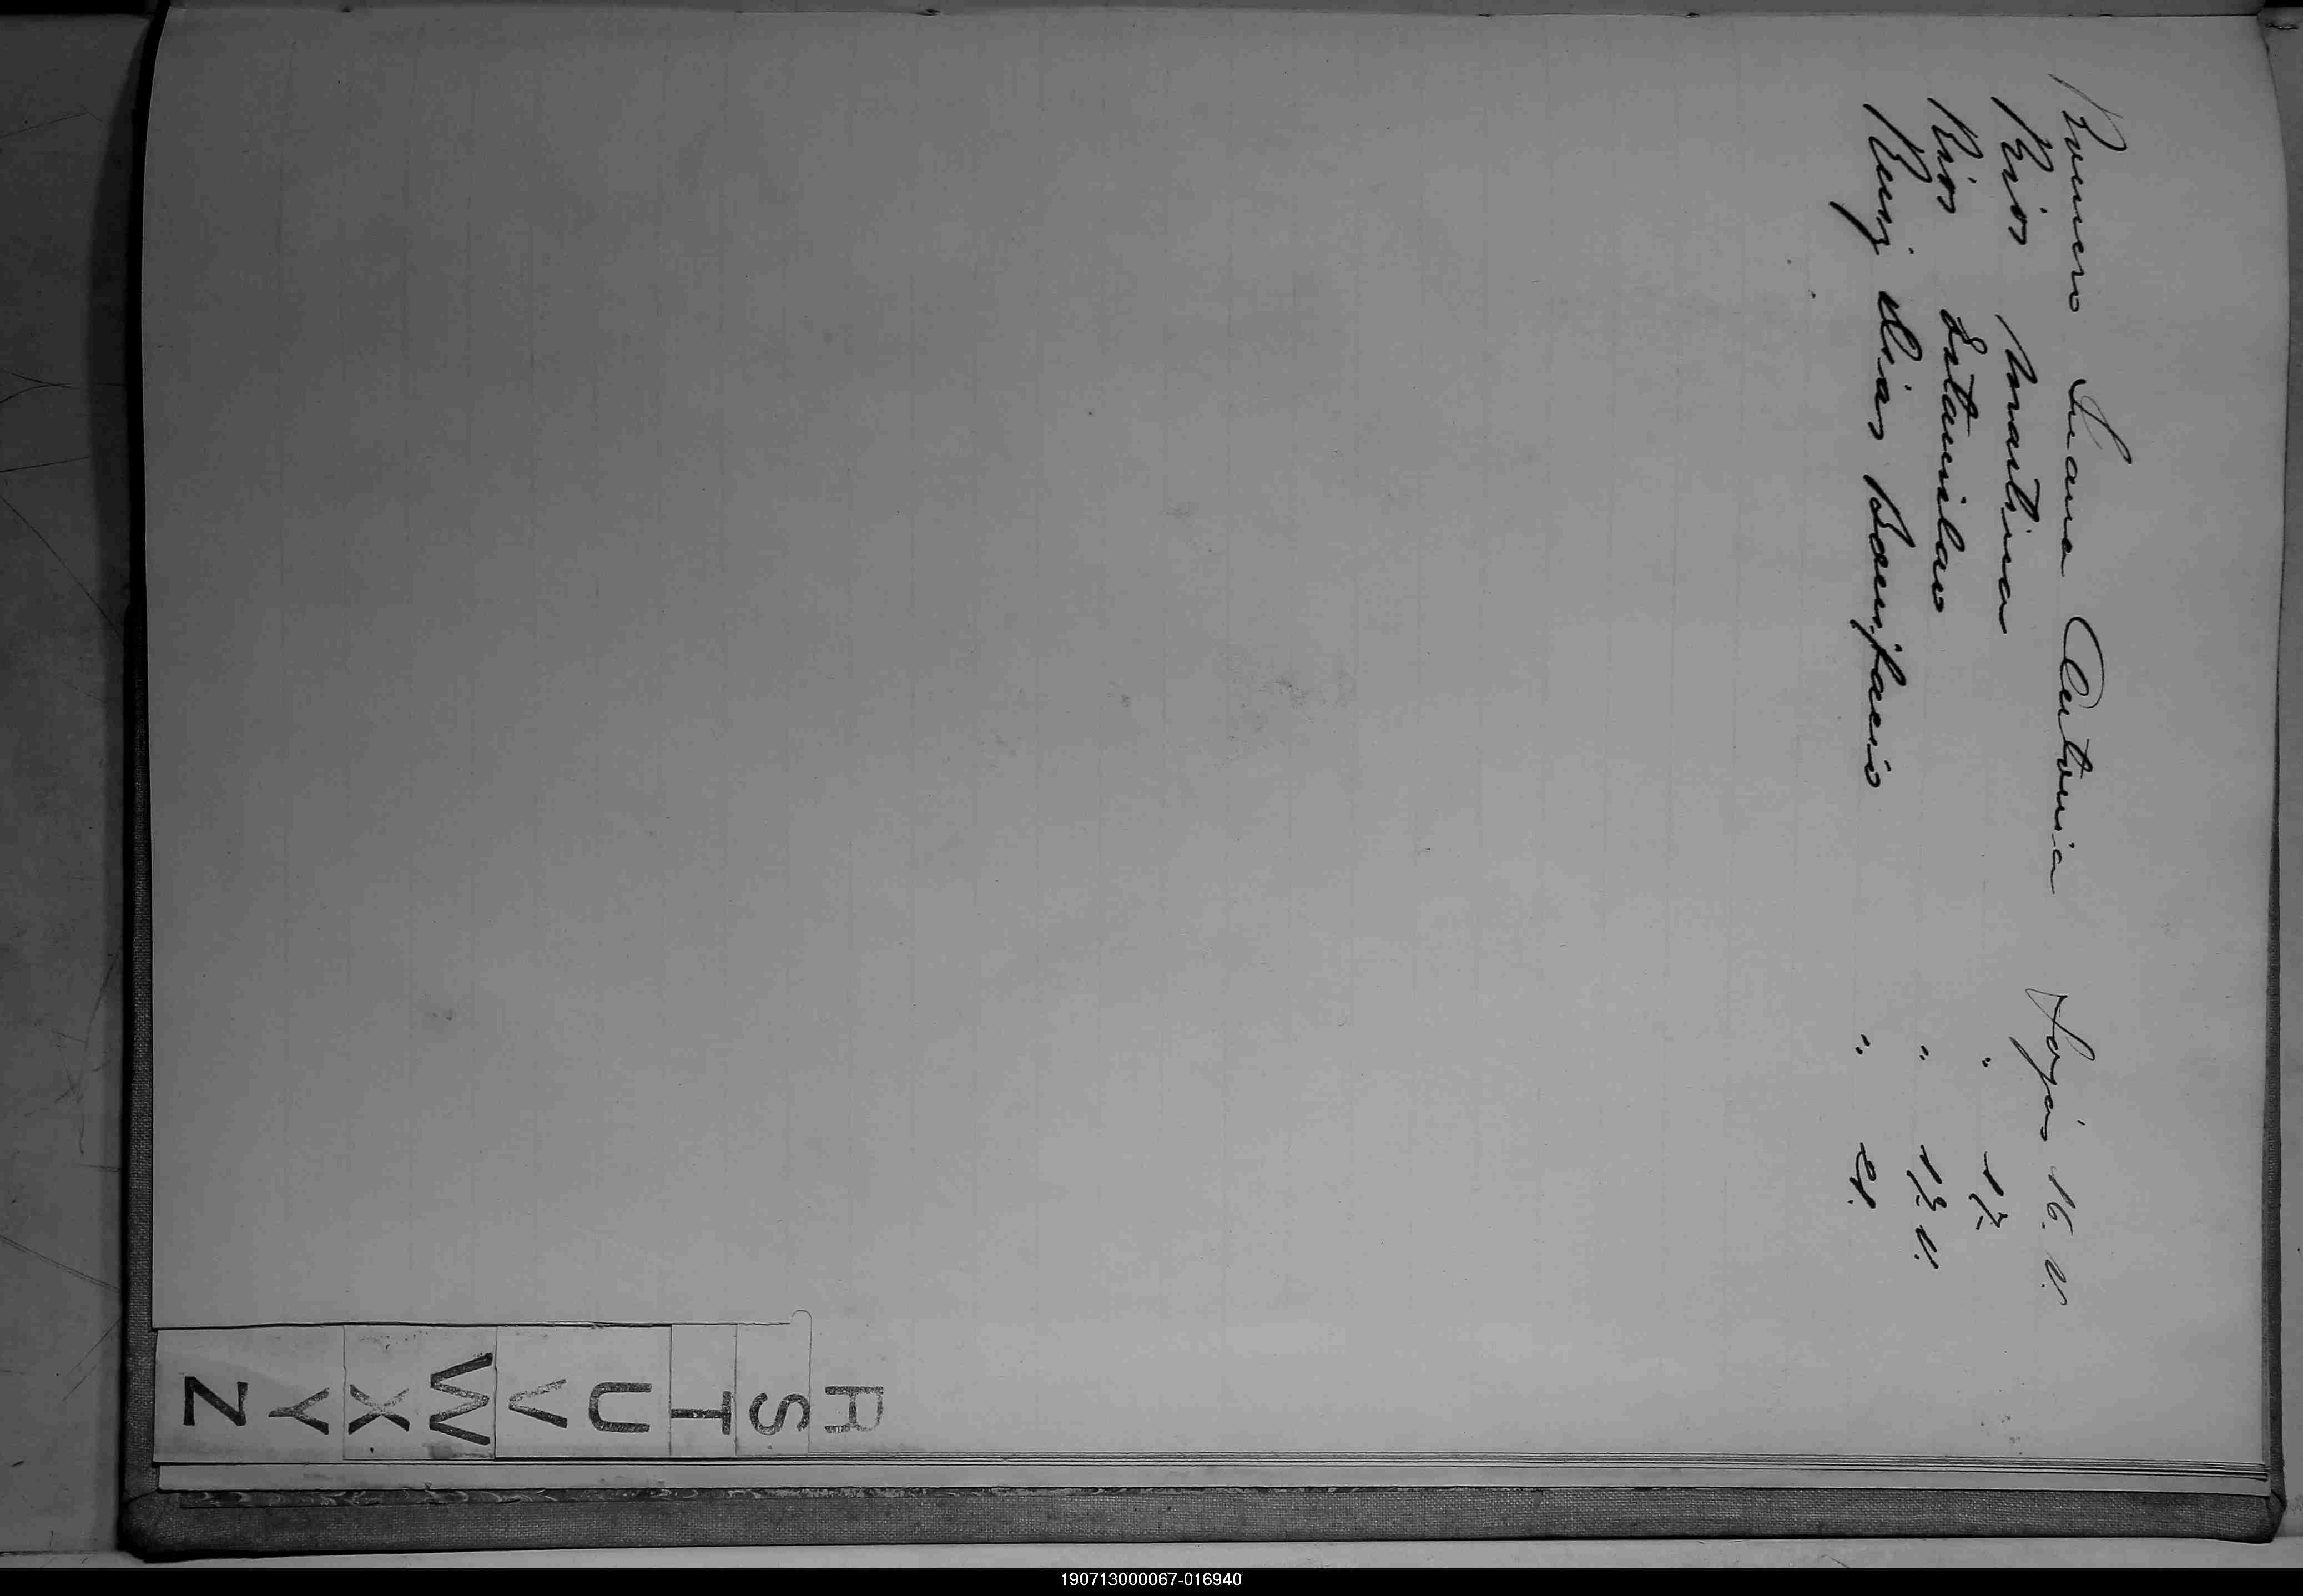 Romero Juana Antonia Fojas 16. V.
Rios Martina " 17
Rios Estanislao " 17. V.
Ruiz dias Bonifacio " 21.
R
S
T
U
V
W
X
Y
Z
190713000067-016940